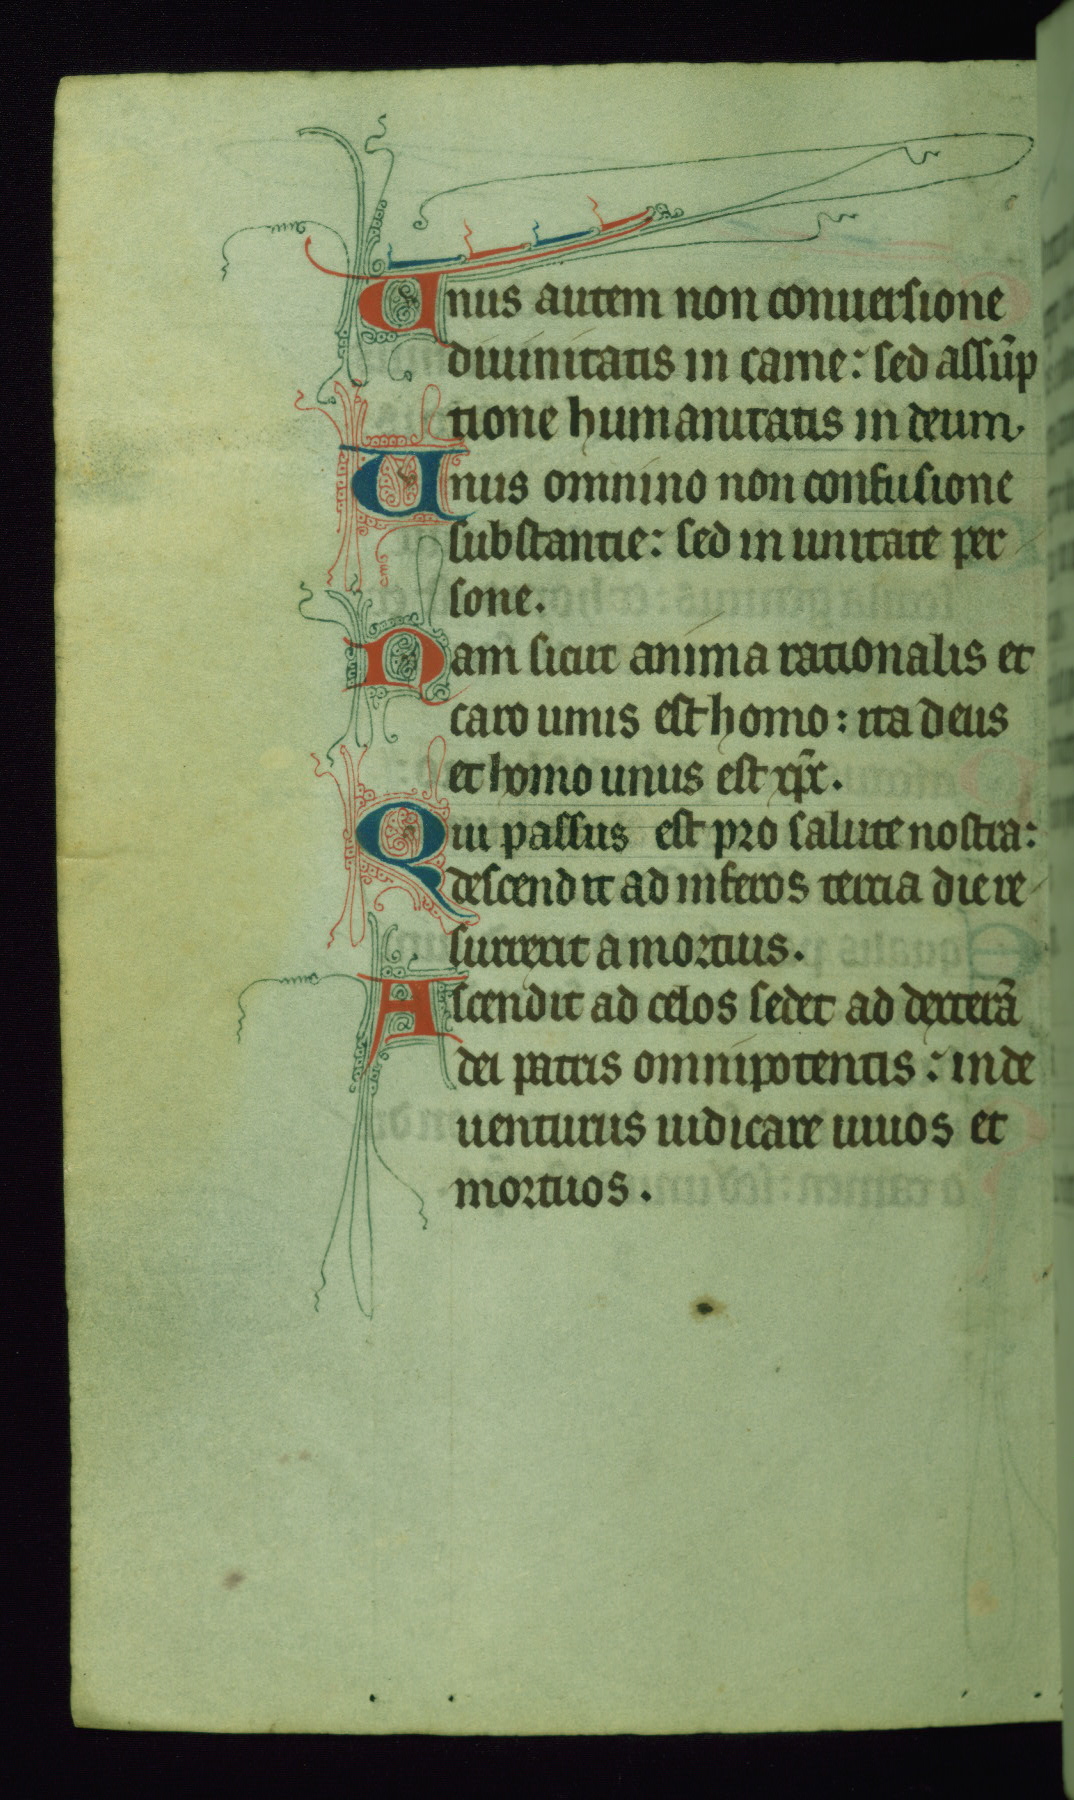 Unus autem non conuersione
diuinitatis in carne: sed assūp
tione humanitatis in deum.
Unus omnino non confusione
substantie: sed in unitate per
sone.
Nam sicut anima rationalis et
caro unus est homo: ita deus
et homo unus est xp̄c.
Qui passus est pro salute nostra:
descendit ad inferos tercia die re
surrexit a mortuis.
Ascendit ad celos sedet ad dexterā
dei patris omnipotentis: inde
uenturus iudicare uiuos et
mortuos.